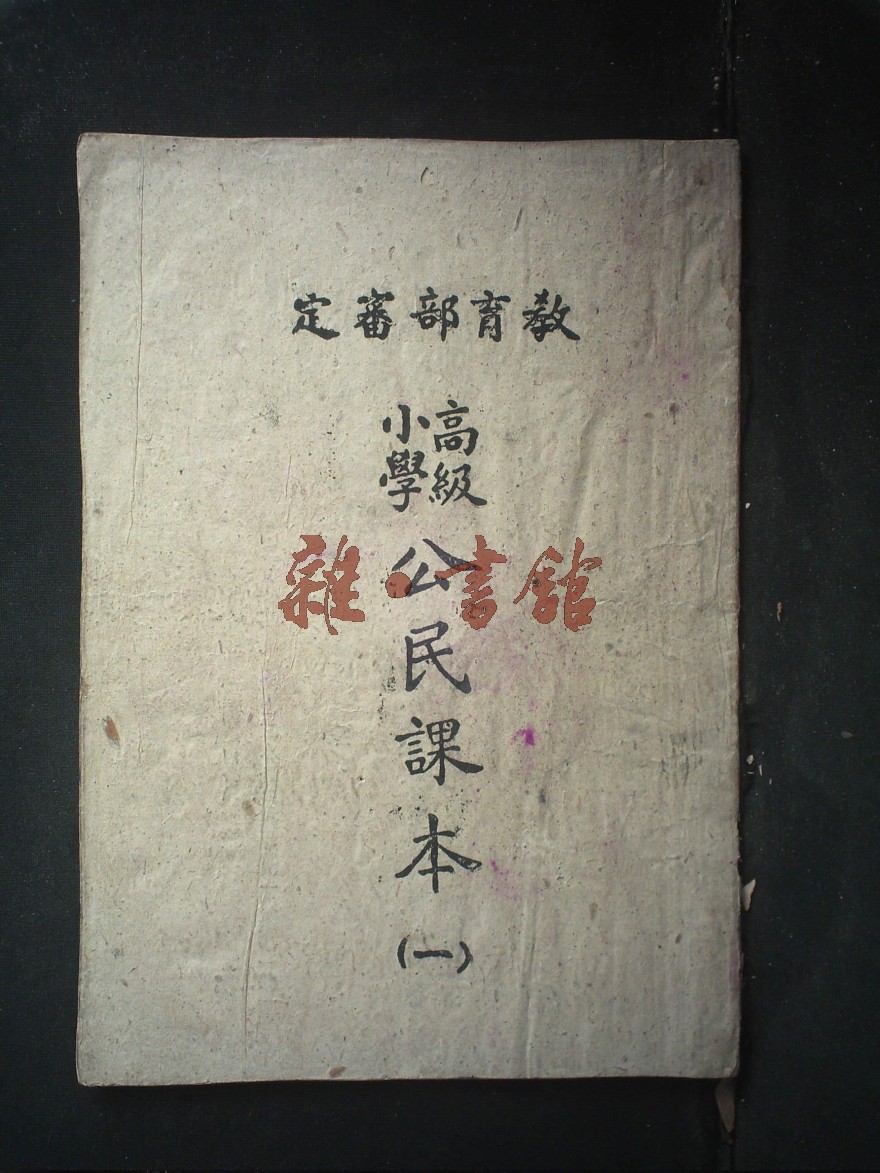 教育部審定
高級
小學
公民課本(一)
雜·書館